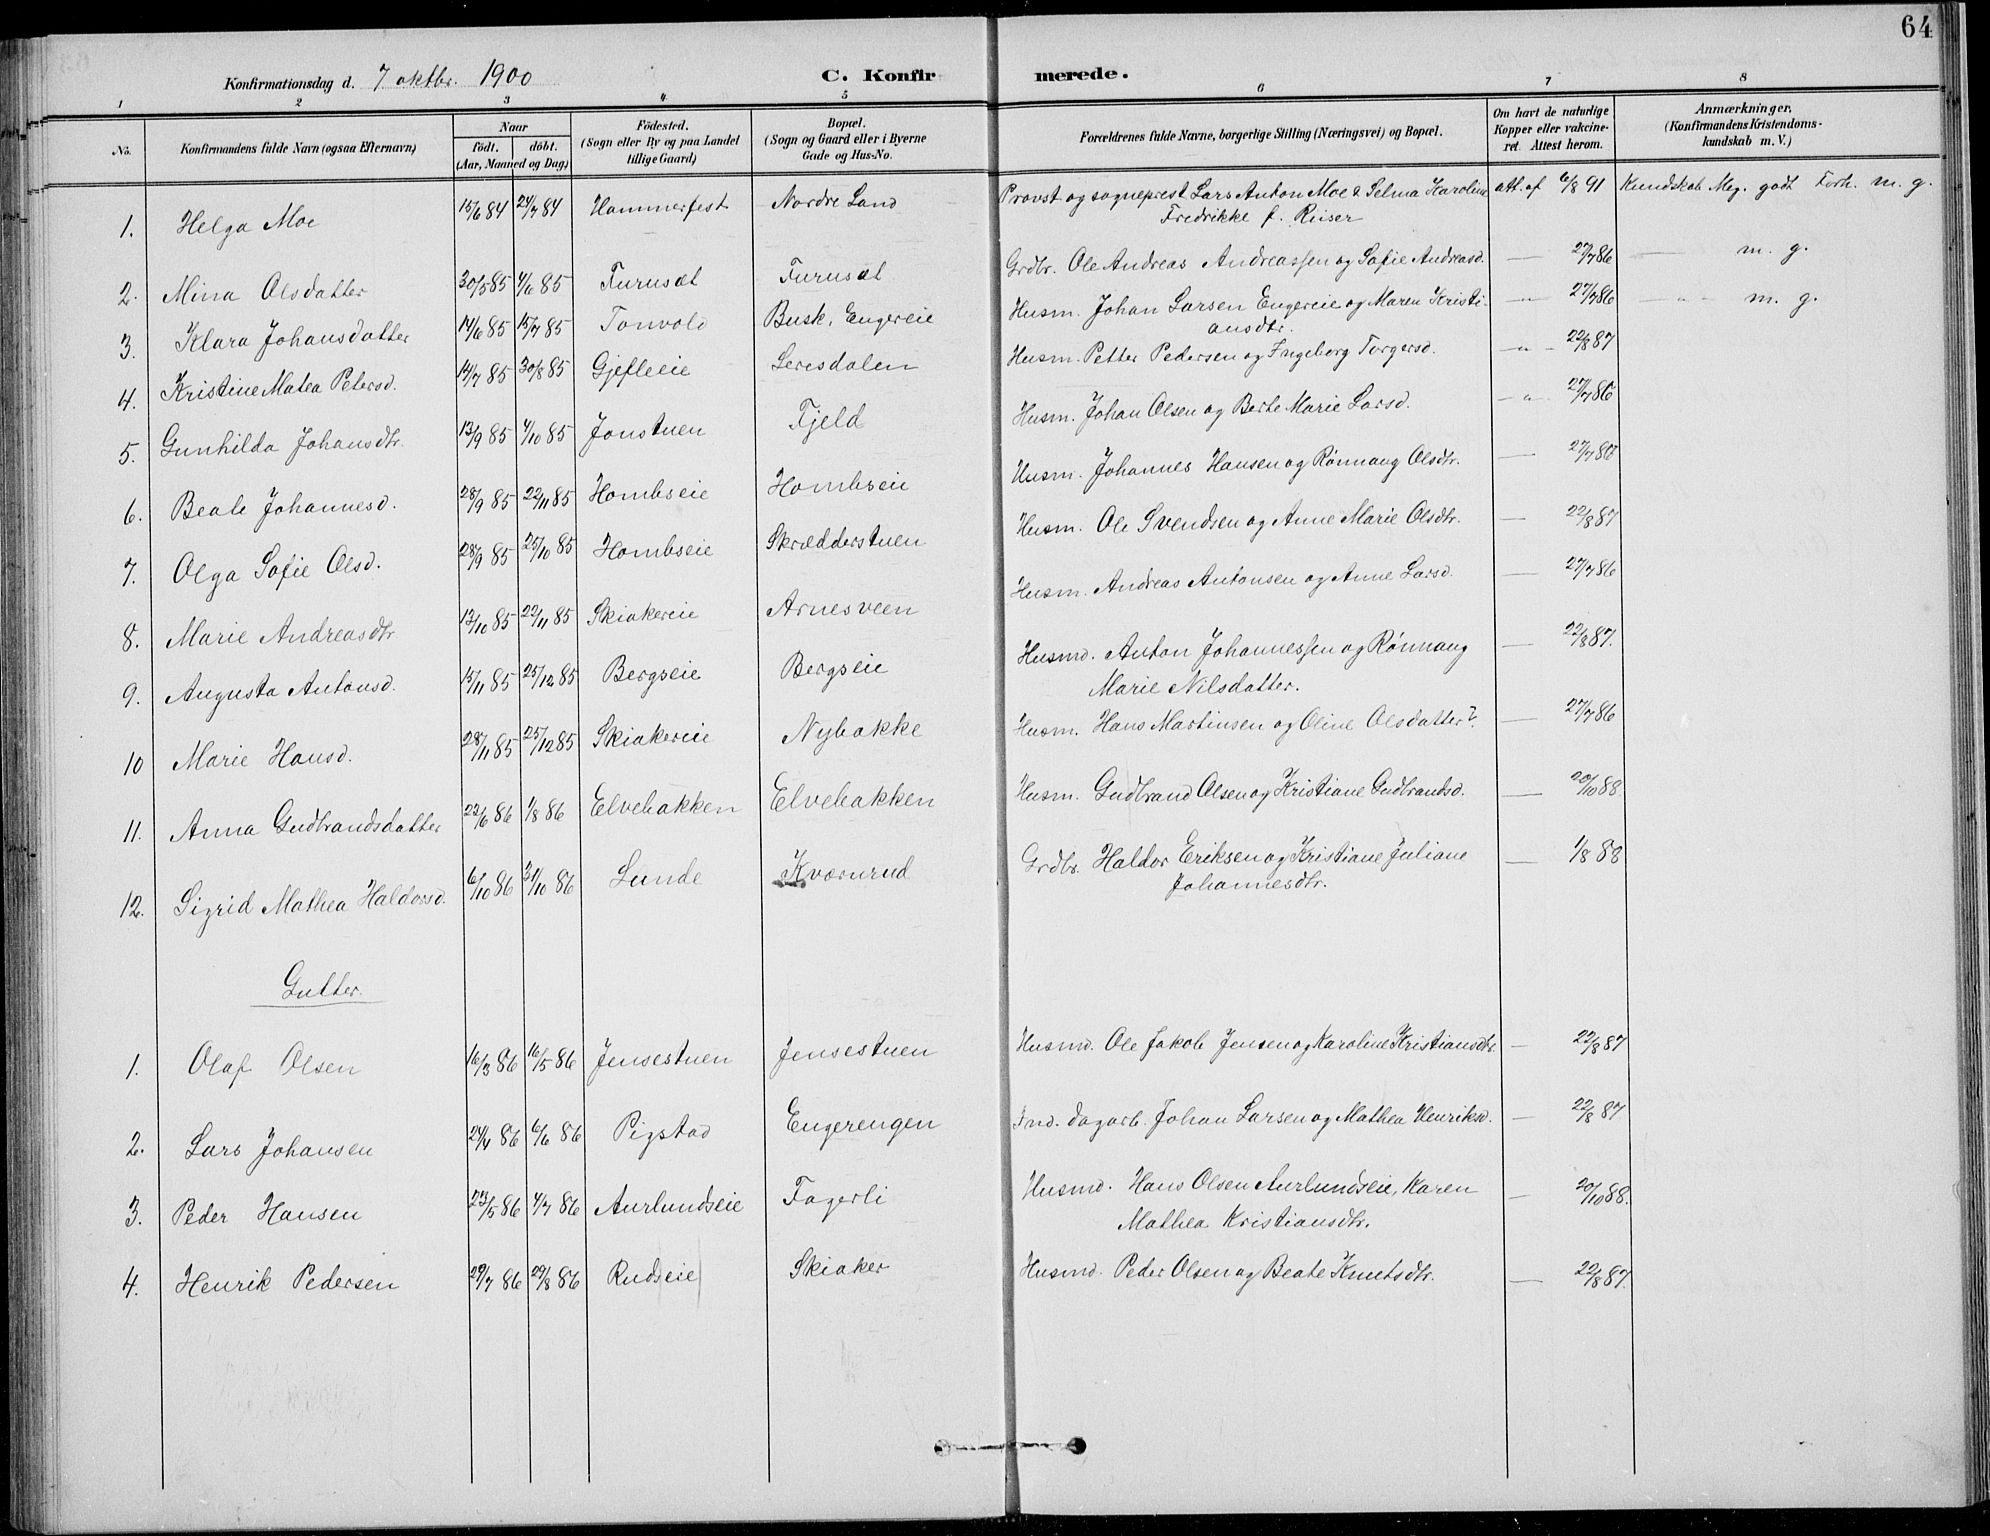 64
Konfirmationsdag d. 7 oktbr. 1900 C. Konfirmerede.
1 2 3 4 5 6 7 8
No. Konfirmandens fulde Navn (ogsaa Efternavn) Naar født. døbt. (Aar, Maaned og Dag) Fødested. (Sogn eller By og paa Landet tillige Gaard) Bopæl. (Sogn og Gaard eller i Byerne Gade og Hus-No. Forældrenes fulde Navne, borgerlige Stilling (Næringsvei) og Bopæl. Om havt de naturlige Kopper eller vakcineret. Attest herom. Anmærkninger. (Konfirmandens Kristendomskundskab m. V.)
1. Helga Moe 15/6 84 24/7 84 Hammerfest Nordre Land Provst og sogneprest Lars Anton Moe & Selma Karoline att. af 6/8 91 Kundskab Meg. godt Forh. m. g.
Fredrikke f. Reiser
2. Mina Olsdatter 30/5 85 4/6 85 Furusæt Furusæt Grdbr. Ole Andreas Andreassen og Sofie Andreasd. — 27/7 86 — m. g.
3. Klara Johansdatter 14/6 85 15/7 85 Tonvold Busk. Engereie Husm. Johan Larsen Engereie og Maren Kristi- —"— 27/7 86 —"— m. g.
ansdtr.
4. Kristine Matea Petersd. 14/7 85 30/8 85 Gjefleeie Leresdalen Husm. Petter Pedersen og Ingeborg Torgersd. —"— 22/8 87
5. Gunhilda Johansdtr. 13/9 85 4/10 85 Jonstuen Fjeld Husm. Johan Olsen og Berte Marie Larsd. —"— 27/7 86
6. Beate Johannesd. 28/9 85 22/11 85 Hombseie Hombseie Husm. Johannes Hansen og Rønnaug Olsdtr. — 27/7 86
7. Olga Sofie Olsd. 28/9 85 25/10 85 Hombseie Skrædderstuen Husm. Ole Svendsen og Anne Marie Olsdtr. — 22/8 87
8. Marie Andreasdtr 13/10 85 22/11 85 Skiakereie Arnesveen Husm. Andreas Antonsen og Anne Larsd. — 27/7 86
9. Augusta Antonsd. 15/11 85 25/12 85 Bergseie Bergseie Husmd. Anton Johannessen og Rønnaug — 22/8 87.
Marie Nilsdatter.
10 Marie Hansd. 28/11 85 25/12 85 Skiakereie Nybakke Husm. Hans Martinsen og Oline Olsdatter — 27/7 86
11. Anna Gudbrandsdatter 22/6 86 1/8 86 Elvebakken Elvebakken Husm. Gudbrand Olsen og Kristiane Gudbrandsd. — 20/10 88
12. Sigrid Mathea Haldorsd. 6/10 86 31/10 86 Lunde Kværnrud Grdbr. Haldor Eriksen og Kristiane Juliane — 1/8 88
Johannesdtr.
Gutter.
1. Olaf Olsen 16/3 86 16/5 86 Jensestuen Jensestuen Husmd. Ole Jakob Jensen og Karoline Kristiansdtr. — 22/8 87
2. Lars Johansen 24/4 86 6/6 86 Pigstad Engerengen Ind. dagarb. Johan Larsen og Mathea Henriksd. — 22/8 87
3. Peder Hansen 23/5 86 4/7 86 Aurlundseie Fagerli Husmd. Hans Olsen Aurlundseie, Karen — 20/10 88.
Mathea Kristiansdtr.
4. Henrik Pedersen 29/7 86 29/8 86 Rudseie Skiaker Husmd. Peder Olsen og Beate Knutsdtr. — 22/8 87.